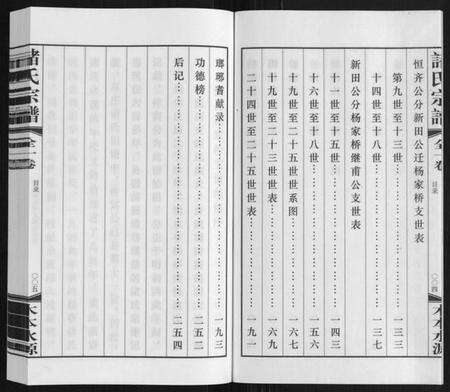 諸氏宗譜
全一卷
目录
〇〇四
木本水源
恒齐公分新田公迁杨家桥支世表
第九世至十三世……一三三
十四世至十八世……一三七
新田公分杨家桥继甫公支世表
十一世至十三世……一四三
十六世至十八世……一五六
十九世至二十五世世系图……一六七
十九世至二十三世世表……一六九
二十四世至二十五世世表……一九一
瑯瑘耆献录……一九三
功德榜……二五二
后记……二五四
諸氏宗譜
全一卷
目录
〇〇五
木本水源